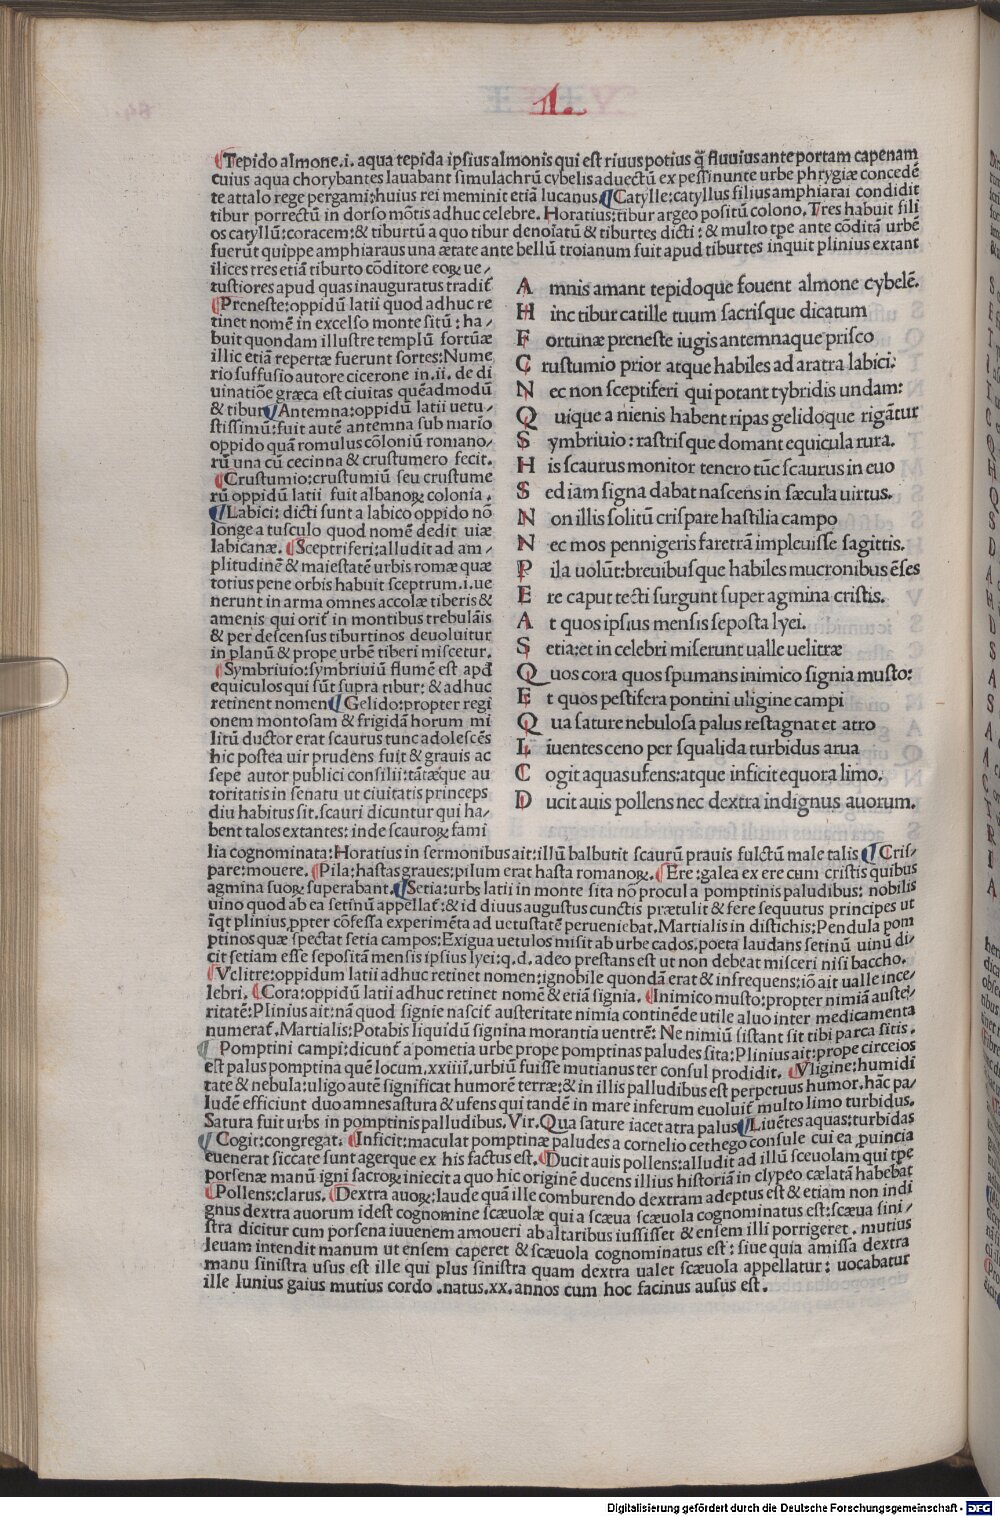 1.
¶Tepido almone.i. aqua tepida ipsius almonis qui est riuus potius q̃ fluuius ante portam capenam
cuius aqua chorybantes lauabant simulachrũ cybelis aduectũ ex pessinunte urbe phrygiæ concedẽ
te attalo rege pergami:huius rei meminit etiã lucanus.¶Catylle:catyllus filius amphiarai condidit
tibur porrectũ in dorso mõtis adhuc celebre. Horatius:tibur argeo positũ colono. Tres habuit fili
os catyllũ:coracem:& tiburtũ a quo tibur denoĩatũ & tiburtes dicti : & multo tpe ante cõditã urbẽ
fuerũt quippe amphiaraus una ætate ante bellũ troianum fuit apud tiburtes inquit plinius extant
ilices tres etiã tiburto cõditore eoꝝ ue/
tustiores apud quas inauguratus tradit̃
¶Preneste:oppidũ latii quod adhuc re
tinet nomẽ in excelso monte sitũ : ha/
buit quondam illustre templũ fortũæ
illic etiã repertæ fuerunt sortes:Nume
rio suffusio autore cicerone in.ii. de di
uinatiõe græca est ciuitas quẽadmodũ
& tibur¶Antemna:oppidũ latii uetu/
stissimũ:fuit autẽ antemna sub mario
oppido quã romulus cõloniũ romano/
rũ una cũ cecinna & crustumero fecit.
¶Crustumio:crustumiũ seu crustume
rũ oppidũ latii fuit albanoꝝ colonia .
¶Labici: dicti sunt a labico oppido nõ
longe a tusculo quod nomẽ dedit uiæ
labicanæ. ¶Sceptriferi:alludit ad am/
plitudinẽ & maiestatẽ urbis romæ quæ
totius pene orbis habuit sceptrum.i.ue
nerunt in arma omnes accolæ tiberis &
amenis qui orit̃ in montibus trebulãis
& per descensus tiburtinos deuoluitur
in planũ & prope urbẽ tiberi miscetur.
¶Symbriuio:symbriuiũ flumẽ est apd
equiculos qui sũt supra tibur: & adhuc
retinent nomen¶Gelido:propter regi
onem montosam & frigidã horum mi
litũ ductor erat scaurus tunc adolescẽs
hic postea uir prudens fuit & grauis ac
sepe autor publici consilii:tãtæque au
toritatis in senatu ut ciuitatis princeps
diu habitus sit.scauri dicuntur qui ha/
bent talos extantes: inde scauroꝝ fami
A mnis amant tepidoque fouent almone cybelẽ.
H inc tibur catille tuum sacrisque dicatum
F ortunæ preneste iugis antemnaque prisco
C rustumio prior atque habiles ad aratra labici:
N ec non sceptiferi qui potant tybridis undam:
Q uique a nienis habent ripas gelidoque rigãtur
S ymbriuio : rastrisque domant equicula rura.
H is scaurus monitor tenero tũc scaurus in euo
S ed iam signa dabat nascens in sæcula uirtus.
N on illis solitũ crispare hastilia campo
N ec mos pennigeris faretrã impleuisse sagittis.
P ila uolũt:breuibusque habiles mucronibus ẽses
E re caput tecti surgunt super agmina cristis.
A t quos ipsius mensis seposta lyei.
S etia:et in celebri miserunt ualle uelitræ
Q uos cora quos spumans inimico signia musto:
E t quos pestifera pontini uligine campi
Q ua sature nebulosa palus restagnat et atro
L iuentes ceno per squalida turbidus arua
C ogit aquas ufens:atque inficit equora limo.
D ucit auis pollens nec dextra indignus auorum.
lia cognominata:Horatius in sermonibus ait:illũ balbutit scaurũ prauis fulctũ male talis ¶Cris/
pare:mouere. ¶Pila:hastas graues:pilum erat hasta romanoꝝ. ¶Ere :galea ex ere cum cristis quibus
agmina suoꝝ superabant.¶Setia:urbs latii in monte sita nõ procul a pomptinis paludibus: nobilis
uino quod ab ea setinũ appellat̃:& id diuus augustus cunctis prætulit & fere sequutus principes ut
ĩqt plinius,ppter cõfessa experimẽta ad uetustatẽ perueniebat.Martialis in distichis:Pendula pom
ptinos quæ spectat setia campos:Exigua uetulos misit ab urbe cados.poeta laudans setinũ uinũ di/
cit setiam esse sepositã mensis ipsius lyei:q.d. adeo prestans est ut non debeat misceri nisi baccho.
¶Velitre:oppidum latii adhuc retinet nomen:ignobile quondã erat & infrequens:iõ ait ualle ince/
lebri. ¶Cora:oppidũ latii adhuc retinet nomẽ & etiã signia. ¶Inimico musto:propter nimiã auste/
ritatẽ:Plinius ait:nã quod signie nascit̃ austeritate nimia continẽde utile aluo inter medicamenta
numerat̃.Martialis:Potabis liquidũ signina morantia uentrẽ: Ne nimiũ sistant sit tibi parca sitis.
¶Pomptini campi:dicunt̃ a pometia urbe prope pomptinas paludes sita:Plinius ait:prope circeios
est palus pomptina quẽ locum.xxiiii.urbiũ fuisse mutianus ter consul prodidit. ¶Vligine:humidi
tate & nebula:uligo autẽ significat humorẽ terræ:& in illis palludibus est perpetuus humor.hãc pa/
ludẽ efficiunt duo amnes astura & ufens qui tandẽ in mare inferum euoluit̃ multo limo turbidus.
Satura fuit urbs in pomptinis palludibus. Vir. Qua sature iacet atra palus¶Liuẽtes aquas:turbidas
¶Cogit:congregat. ¶Inficit:maculat pomptinæ paludes a cornelio cethego consule cui ea ,puincia
euenerat siccate sunt agerque ex his factus est. ¶Ducit auis pollens:alludit ad illũ sceuolam qui tpe
porsenæ manũ igni sacroꝝ iniecit a quo hic originẽ ducens illius historiã in clypeo cælatã habebat
¶Pollens:clarus. ¶Dextra auoꝝ:laude quã ille comburendo dextram adeptus est & etiam non indi
gnus dextra auorum idest cognomine scæuolæ qui a scæua scæuola cognominatus est:scæua sini/
stra dicitur cum porsena iuuenem amoueri ab altaribus iussisset & ensem illi porrigeret . mutius
leuam intendit manum ut ensem caperet & scæuola cognominatus est : siue quia amissa dextra
manu sinistra usus est ille qui plus sinistra quam dextra ualet scæuola appellatur : uocabatur
ille Iunius gaius mutius cordo .natus.xx.annos cum hoc facinus ausus est.
Digitalisierung gefördert durch die Deutsche Forschungsgemeinschaft - DFG